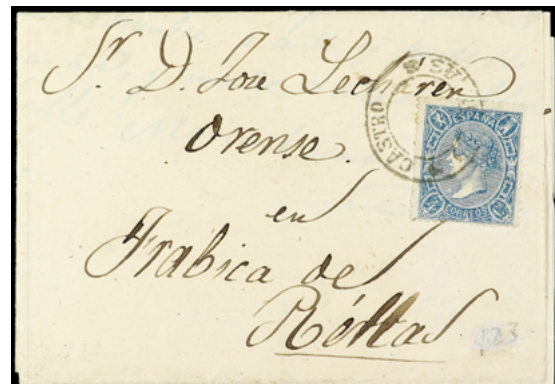 Sr. D. Jose Lecharen
Orense.
en
Frabica de
CASTRO
ESPAÑA
CORREOS
123